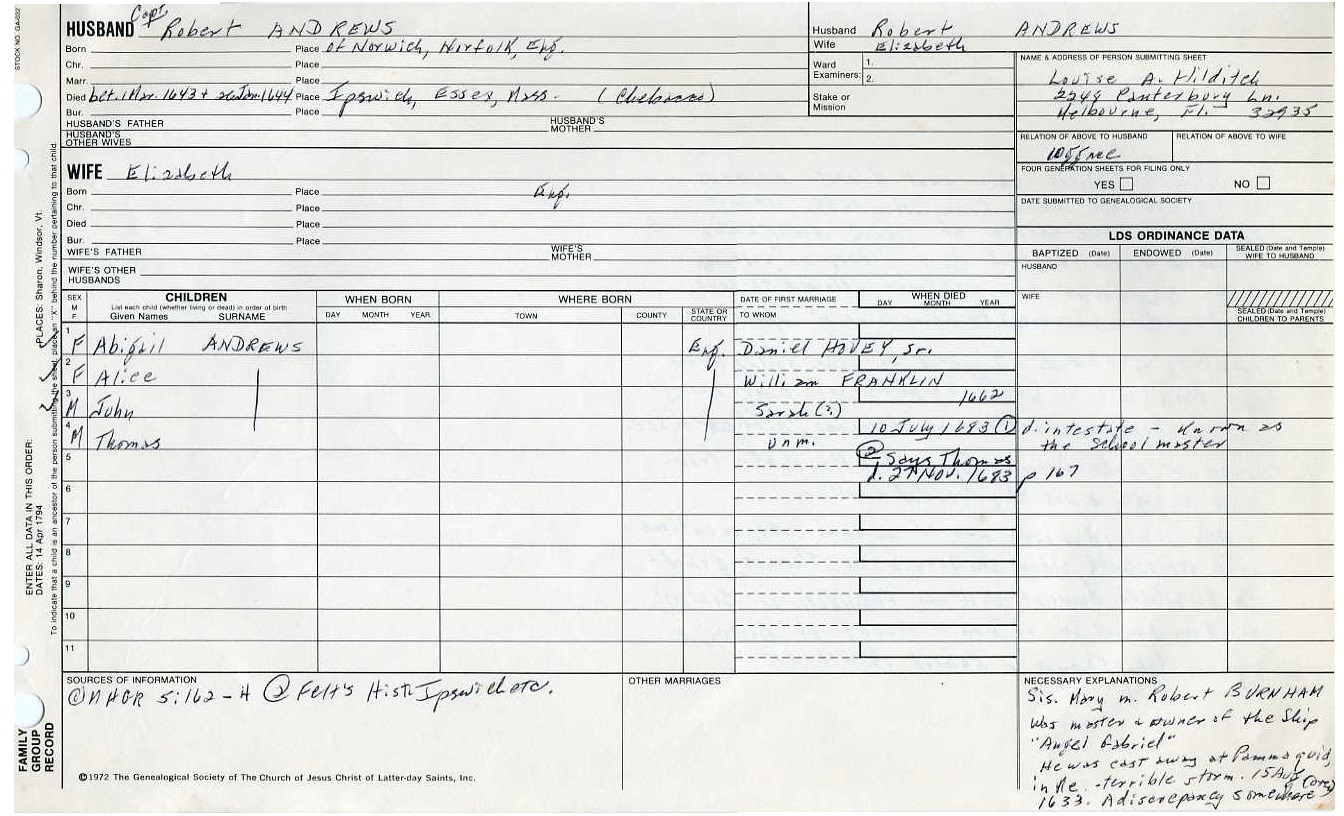 STOCK NO. GA-002
HUSBAND Capt. Robert ANDREWS
Born Place of Norwich, Norfolk, Eng.
Chr. Place
Marr. Place
Died bet. 1 Mar. 1643 + Jan. 1644 Place Ipswich, Essex, Mass. (Chebacco)
Bur. Place
HUSBAND'S FATHER HUSBAND'S MOTHER
HUSBAND'S OTHER WIVES
Husband Robert ANDREWS
Wife Elizabeth
Ward Examiners: 1. 2.
Stake or Mission
NAME & ADDRESS OF PERSON SUBMITTING SHEET
Louise A. Hilditch
Canterbury Ln.
Melbourne, Fl. 32935
RELATION OF ABOVE TO HUSBAND RELATION OF ABOVE TO WIFE
FOUR GENERATION SHEETS FOR FILING ONLY
YES NO
DATE SUBMITTED TO GENEALOGICAL SOCIETY
WIFE Elizabeth
Born Place Eng.
Chr. Place
Died Place
Bur. Place
WIFE'S FATHER WIFE'S MOTHER
WIFE'S OTHER HUSBANDS
LDS ORDINANCE DATA
BAPTIZED (Date) ENDOWED (Date) SEALED (Date and Temple) WIFE TO HUSBAND
HUSBAND
WIFE
SEALED (Date and Temple) CHILDREN TO PARENTS
SEX M F CHILDREN List each child (whether living or dead) in order of birth Given Names SURNAME
WHEN BORN DAY MONTH YEAR
WHERE BORN TOWN COUNTY STATE OR COUNTRY
DATE OF FIRST MARRIAGE TO WHOM
WHEN DIED DAY MONTH YEAR
1 F Abigail ANDREWS Eng. Daniel HOVEY, Sr.
2 F Alice William FRANKLIN
3 M John Sarah (?) 1662
4 M Thomas unm. 10 July 1683 ① d. intestate - Known as the School master
5 ② Says Thomas
d. 27 Nov. 1683 p 167
6
7
8
9
10
11
SOURCES OF INFORMATION
① NHGR 5:162-4 ② Felt's Hist. Ipswich etc.
OTHER MARRIAGES
NECESSARY EXPLANATIONS
Sis. Mary m. Robert BURNHAM
Was master & owner of the Ship
"Angel Gabriel"
He was cast away at Pammaquid,
in Me. -terrible storm. 15 Aug
1633. A discrepancy somewhere
©1972 The Genealogical Society of The Church of Jesus Christ of Latter-day Saints, Inc.
ENTER ALL DATA IN THIS ORDER:
DATES: 14 Apr 1794 PLACES: Sharon, Windsor, Vt.
To indicate that a child is an ancestor of the person submitting the sheet, place an "X" behind the number pertaining to that child.
FAMILY GROUP RECORD